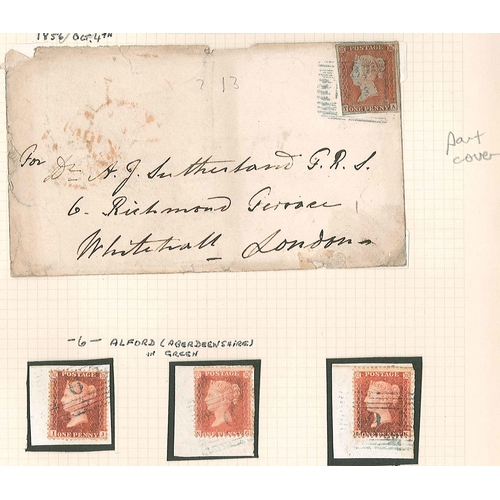 1856/Oct. 4TH
POSTAGE
ONE PENNY
2 13
Part
cover
For Dr. A. J. Sutherland F.R.S.
6. Richmond Terrace
Whitehall - London
-6- ALFORD (ABERDEENSHIRE)
IN GREEN
POSTAGE
ONE PENNY
POSTAGE
ONE PENNY
POSTAGE
ONE PENNY